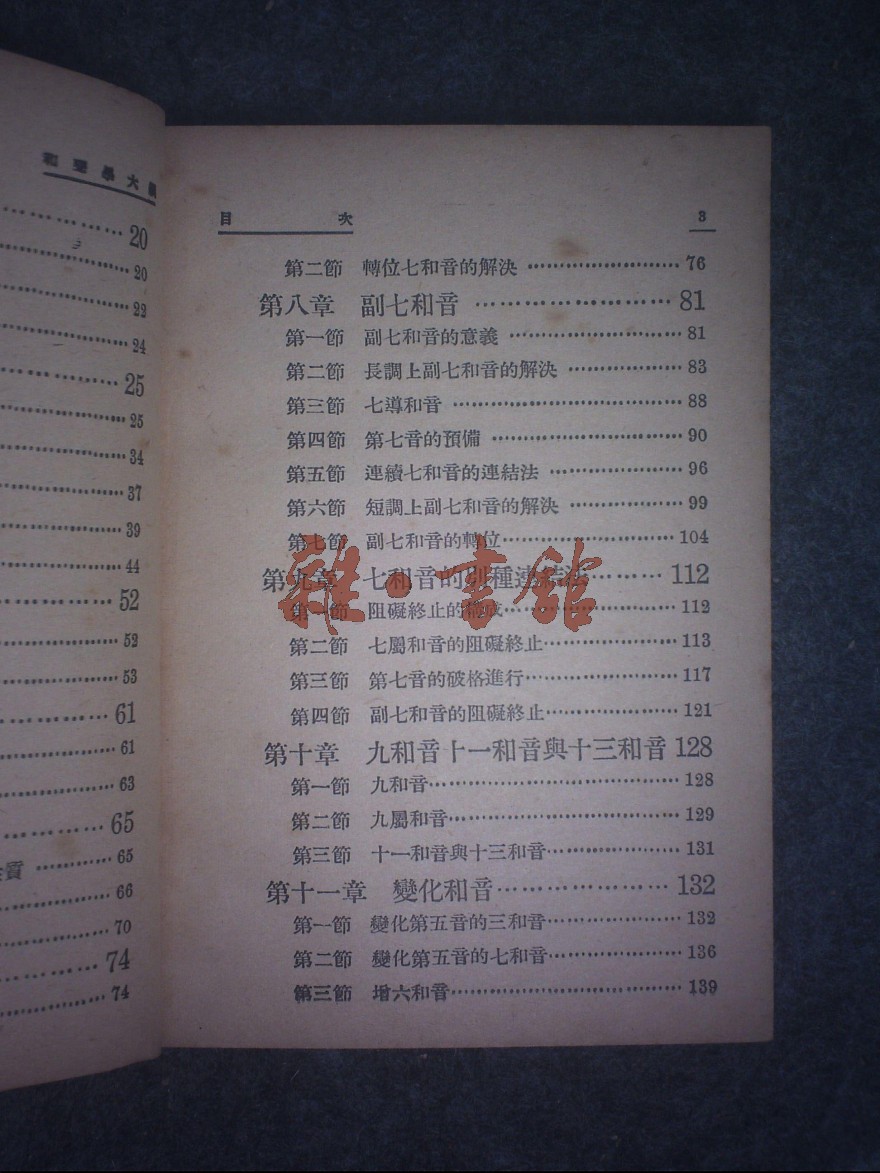 和聲學大綱
20
20
22
24
25
25
34
37
39
44
52
52
53
61
61
63
65
65
66
70
74
74
目次 3
第二節 轉位七和音的解決 76
第八章 副七和音 81
第一節 副七和音的意義 81
第二節 長調上副七和音的解決 83
第三節 七導和音 88
第四節 第七音的預備 90
第五節 連續七和音的連結法 96
第六節 短調上副七和音的解決 99
第七節 副七和音的轉位 104
第九章 七和音的別種連結法 112
第一節 阻礙終止的構成 112
第二節 七屬和音的阻礙終止 113
第三節 第七音的破格進行 117
第四節 副七和音的阻礙終止 121
第十章 九和音十一和音與十三和音 128
第一節 九和音 128
第二節 九屬和音 129
第三節 十一和音與十三和音 131
第十一章 變化和音 132
第一節 變化第五音的三和音 132
第二節 變化第五音的七和音 136
第三節 增六和音 139
雜·書館